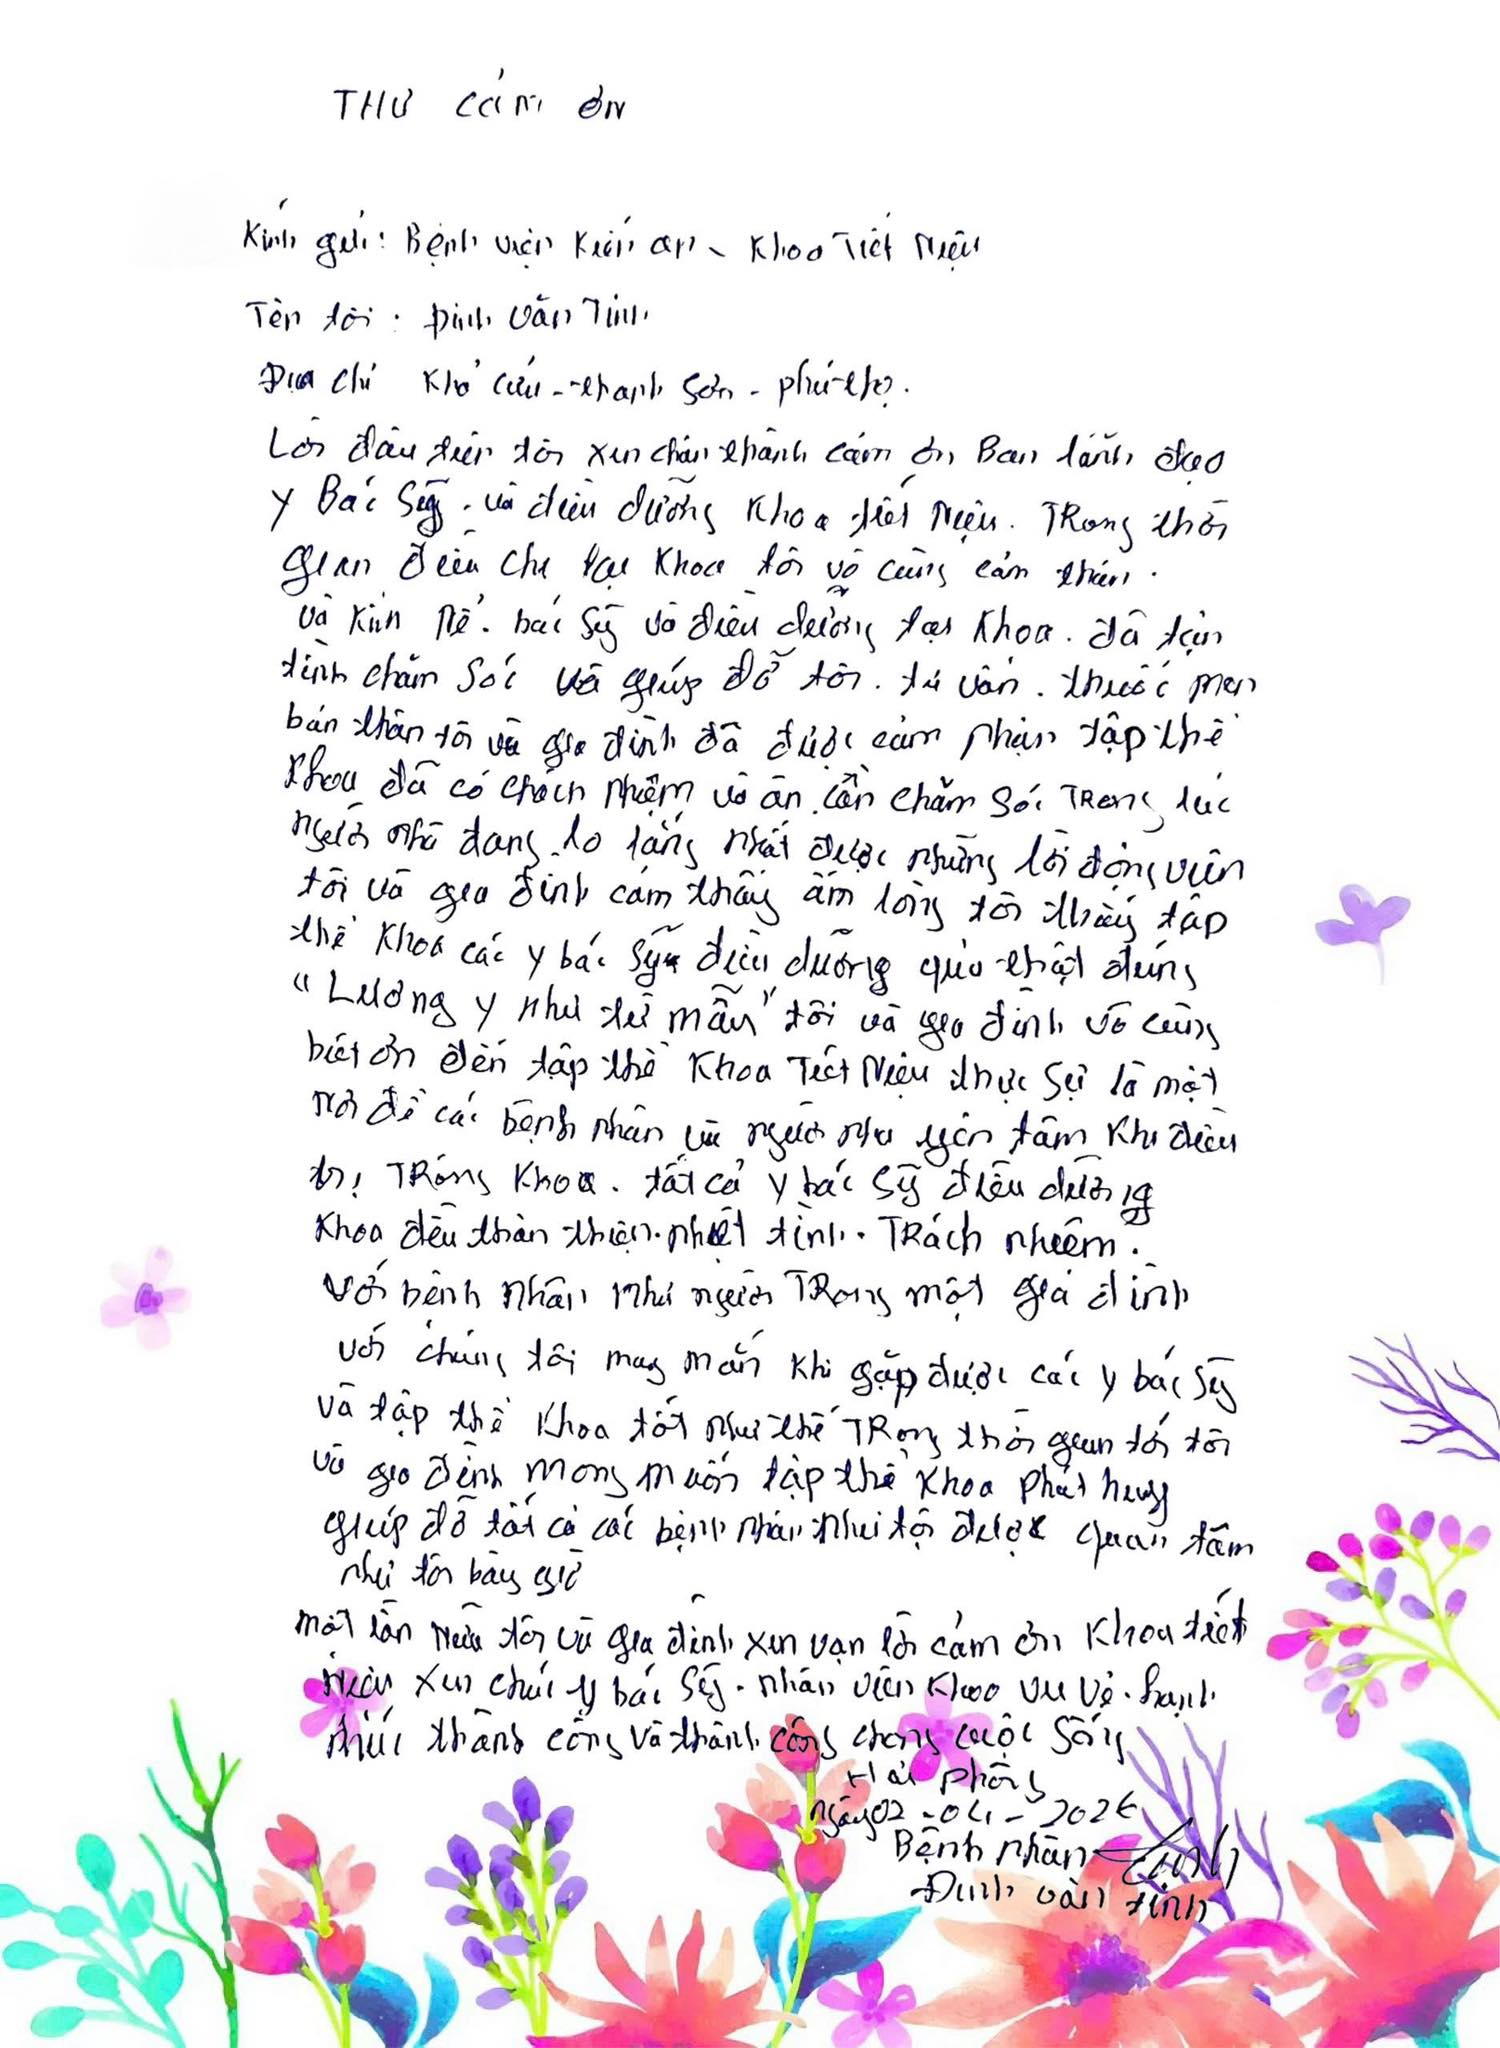 THƯ CẢM ƠN
Kính gửi: Bệnh viện Kiến an - Khoa Tiết Niệu
Tên tôi: Đinh Văn Tính
Địa chỉ Khả Cửu - thanh Sơn - phú thọ.
Lời đầu tiên tôi xin chân thành cảm ơn Ban lãnh đạo
y Bác Sỹ. và điều dưỡng Khoa tiết Niệu. TRong thời
gian điều chị tại Khoa tôi vô cùng cảm thấn.
và Kính Nể. bác sỹ và điều dưỡng tại Khoa. đã tận
tình chăm sóc và giúp đỡ tôi. tư vấn. thuốc men
bản thân tôi và gia đình đã được cảm nhận tập thể
Khoa đã có chách nhiệm và ân cần chăm sóc TRong lúc
người nhà đang lo lắng nhất được những lời động viên
tôi và gia đình cảm thấy ấm lòng tôi thấy tập
thể Khoa các y bác sỹ điều dưỡng quả thật đúng
"Lương y như từ mẫu" tôi và gia đình vô cùng
biết ơn đến tập thể Khoa Tiết Niệu thực sự là một
nơi để các bệnh nhân và người nhà yên tâm khi điều
trị TRong Khoa. tất cả y bác sỹ điều dưỡng
Khoa đều thân thiện. nhiệt tình. TRách nhiệm.
với bệnh nhân như người TRong một gia đình
với chúng tôi may mắn khi gặp được các y bác sỹ
và tập thể Khoa tốt như thế TRong thời gian tới tôi
và gia đình mong muốn tập thể Khoa phát huy
giúp đỡ tất cả các bệnh nhân như tôi được quan tâm
như tôi bây giờ
một lần nữa tôi và gia đình xin vạn lời cảm ơn Khoa tiết
Niệu xin chúc y bác sỹ. nhân viên Khoa vui vẻ. hạnh
phúc thành công và thành công chong cuộc sống
Hải phòng
ngày 02 - 04 - 2026
Bệnh nhân
Đinh văn tính